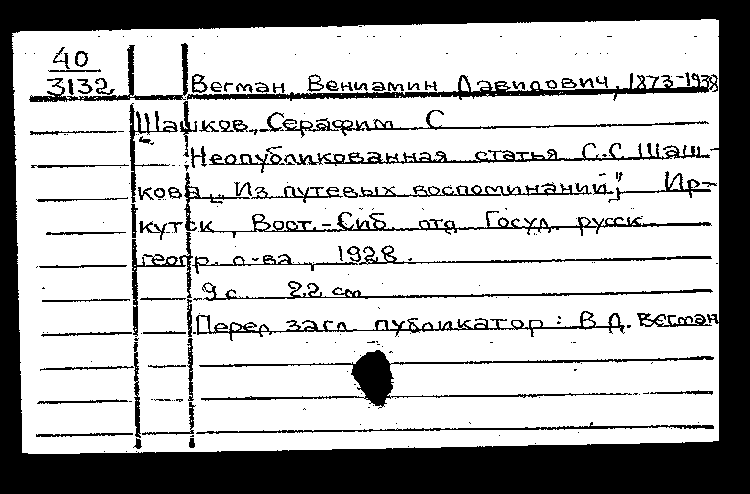 40
3132 Вегман, Вениамин Давидович, 1873-1938
Шашков, Серафим С
Неопубликованная статья С.С. Шаш-
кова „Из путевых воспоминаний", Ир-
кутск, Вост.-Сиб. отд Госуд. русск.
геогр. о-ва, 1928.
9 с. 22 cm
Перед загл публикатор: В.Д. Вегман